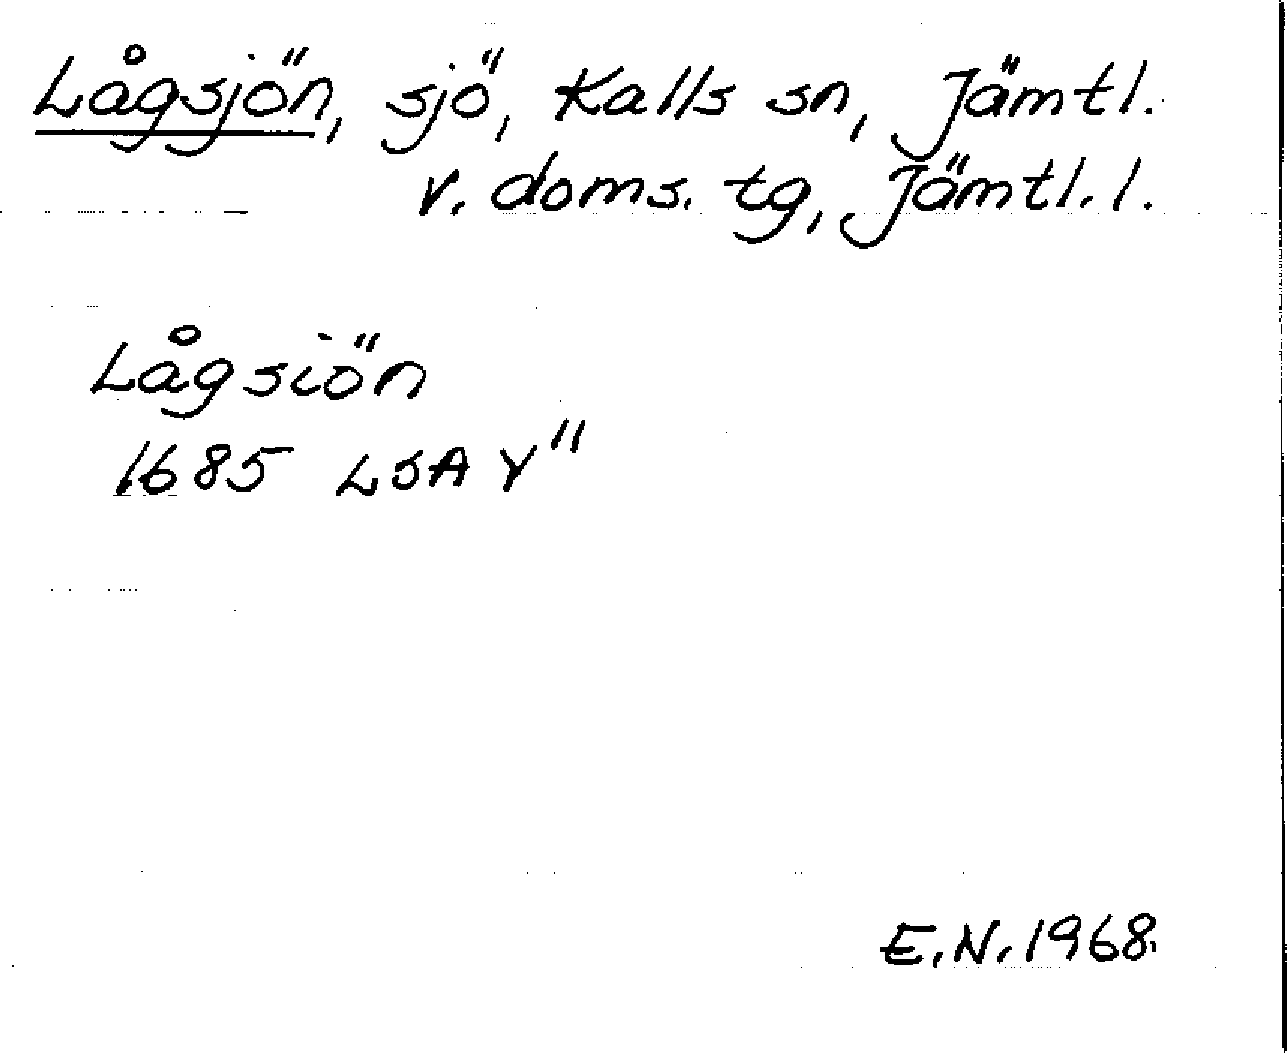 Lågsjön, sjö, Kalls sn, Jämtl.
v. doms. tg, Jämtl. l.
Lågsiön
1685 LSA Y"
E.N. 1968